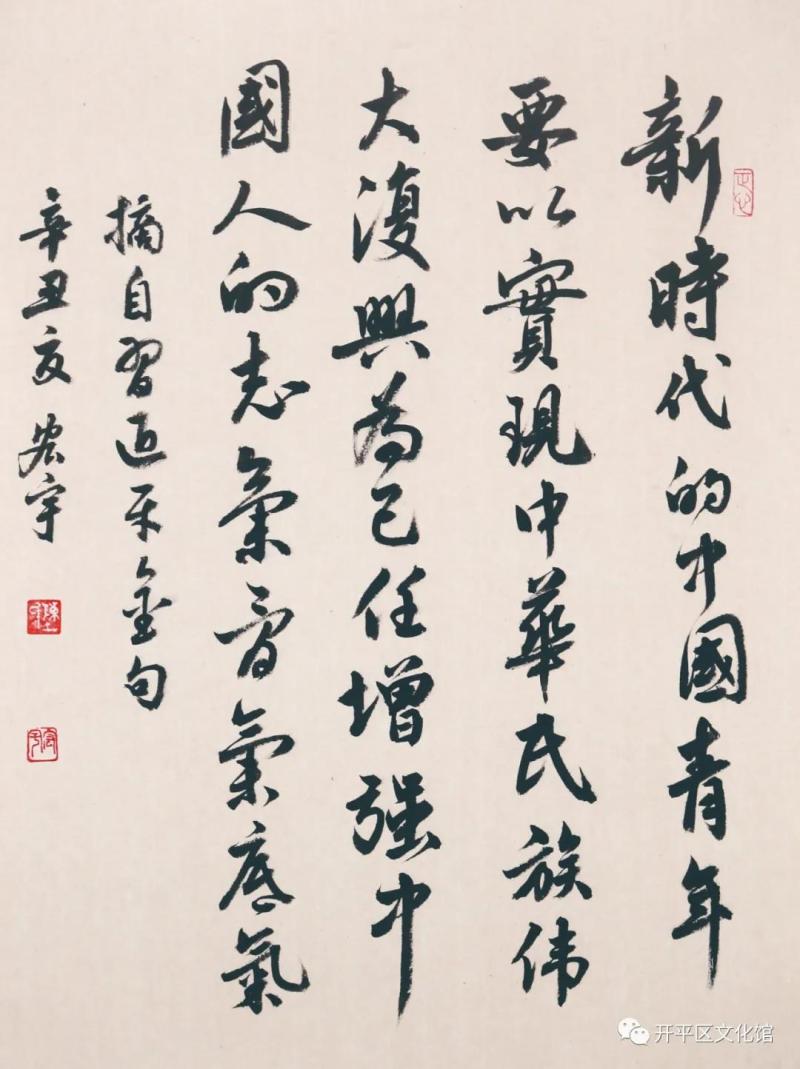 新時代的中國青年
要以實現中華民族伟
大復興為己任增强中
國人的志氣骨氣底氣
摘自習近平金句
辛丑夏宏宇
开平区文化馆